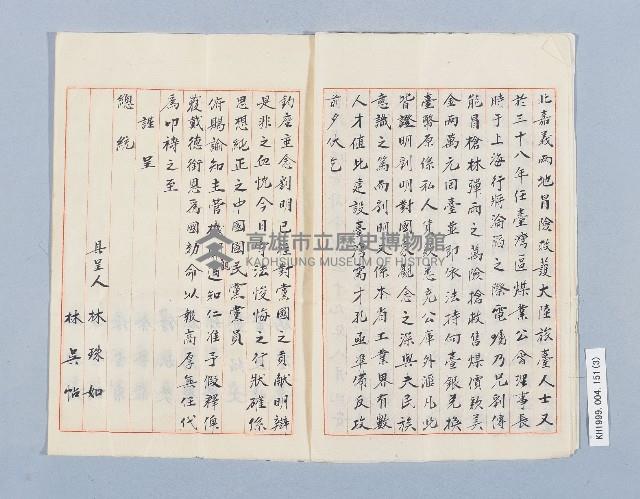 北嘉義兩地冒險救護大陸旅臺人士又
於三十八年任臺灣區煤業公會理事長
時于上海行將淪陷之際電囑乃兄劉傳
能冒槍林彈雨之萬險搶救售煤價款美
金兩萬元回臺並即依法持向臺銀兌換
臺幣原係私人貨款悉充公庫外滙凡此
皆證明劉明對國家觀念之深與夫民族
意識之篤而劉明又係本省工業界有數
人才值此建設臺灣需才孔亟準備反攻
前夕伏乞
鈞座垂念劉明已往對黨國之貢獻明辯
是非之血忱今日守法悛悔之行狀確係
思想純正之中國國民黨黨員
俯賜諭知主管機關通知仁准予假釋俾
獲戴德銜恩為國効命以報高厚無任代
為叩禱之至
謹呈
總統
具呈人 林珠如
林吳帖
高雄市立歷史博物館
KAOHSIUNG MUSEUM OF HISTORY
KH1999.004.151(3)